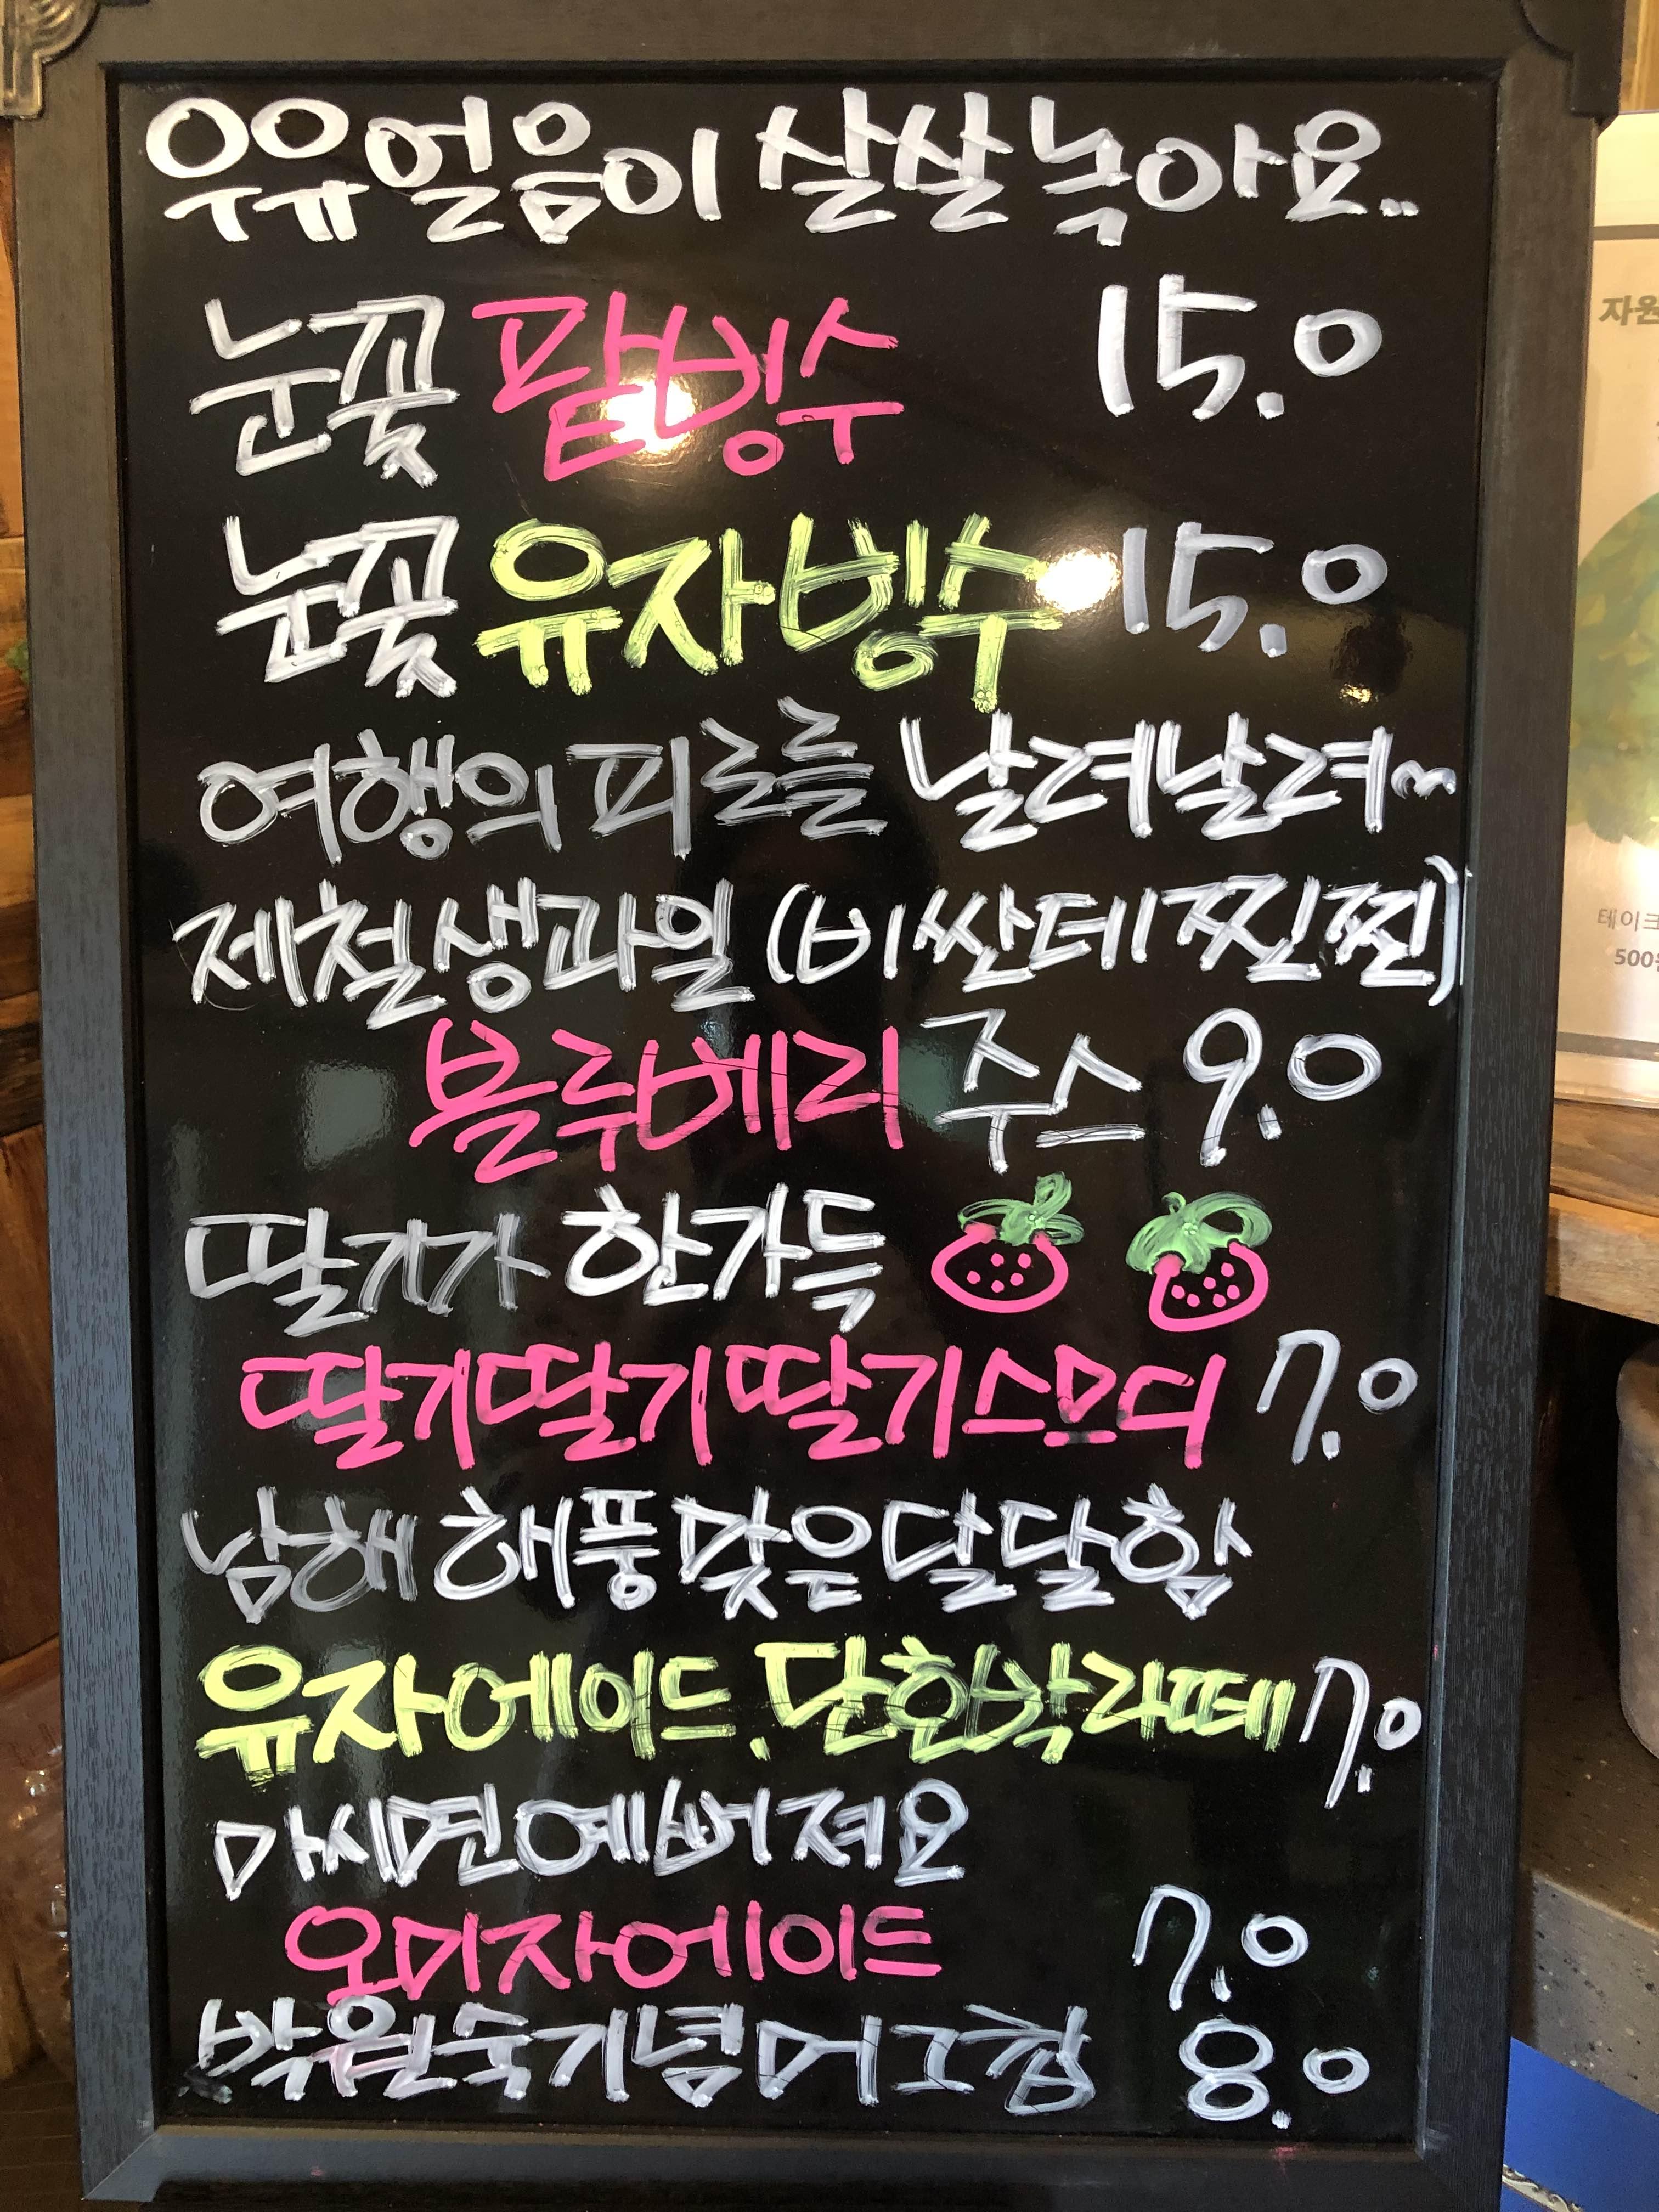 우유얼음이 살살 녹아요..
눈꽃 팥빙수 15.0
눈꽃 유자빙수 15.0
여행의 피로를 날려날려~
제철생과일 (비싼데 찐찐)
블루베리 주스 9.0
딸기가 한가득
딸기딸기딸기스므디 7.0
남해 해풍 맞은 달달함
유자에이드. 단호박라떼 7.0
마시면 예뻐져요
오미자에이드 7.0
박원숙기념머그컵 8.0
자원
테이크
500원